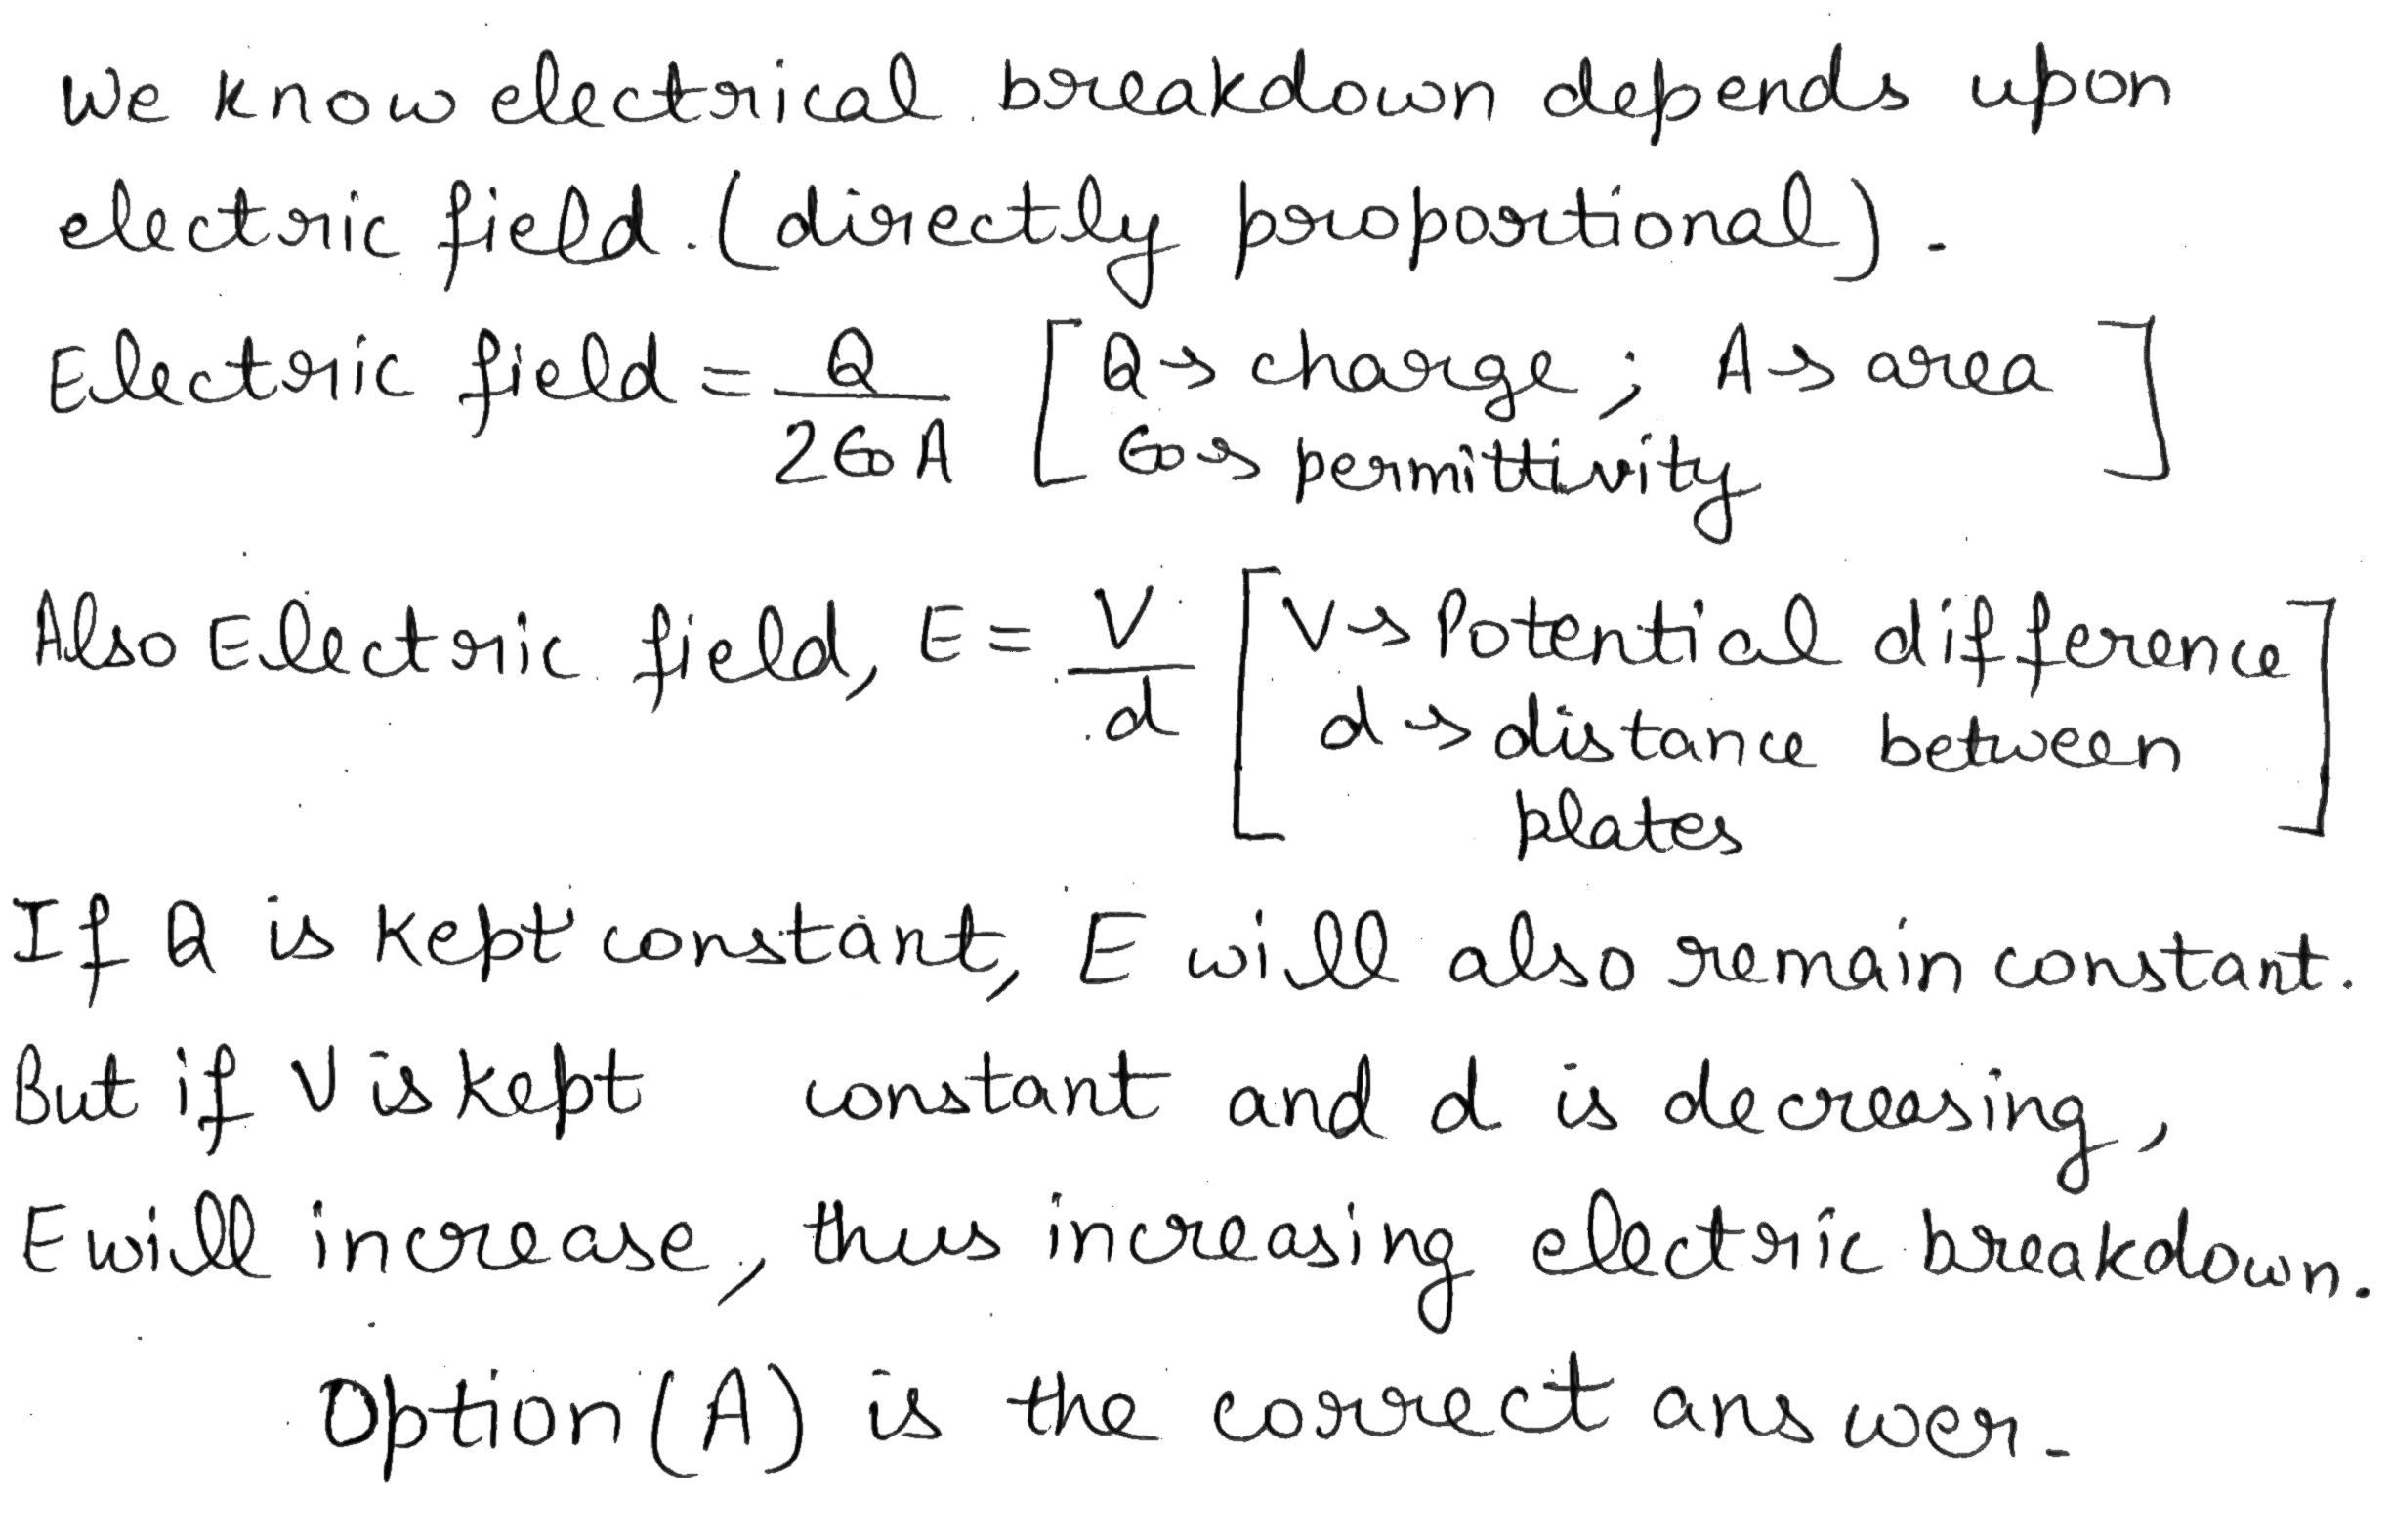 We know electrical breakdown depends upon
electric field. (directly proportional).
Electric field = Q/2ϵ0A [Q → charge; A → area
ϵ0 → permittivity]
Also Electric field, E = V/d [V → Potential difference
d → distance between
plates]
If Q is kept constant, E will also remain constant.
But if V is kept constant and d is decreasing,
E will increase, thus increasing electric breakdown.
Option (A) is the correct answer.